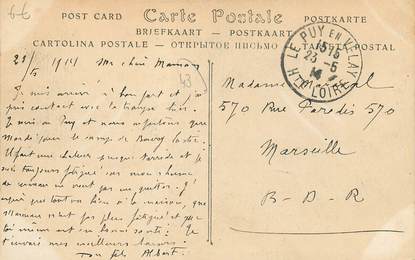 66
POST CARD Carte Postale POSTKARTE
BRIEFKAART POSTKAART
CARTOLINA POSTALE ОТКРЫТОЕ ПИСЬМО
LE PUY EN VELAY
1515
23-5
14
HTE LOIRE
23/5 1914 Ma chère Maman
43
Je suis arrivé à bon port et j'ai
pris contact avec la troupe hier.
Je suis au Puy et nous partons que
Mardi pour le camp de
Il fait une chaleur presque et je suis
toujours fatigué
de cerveau ne veut pas me quitter. J'
espère que tout va bien à la maison, que
n'est pas plus fatigué et que
toi même est en bonne santé. Je
t'envoie mes meilleurs baisers.
Ton fils Albert.
Madame
570 Rue Paradis 570
Marseille
B-D-R